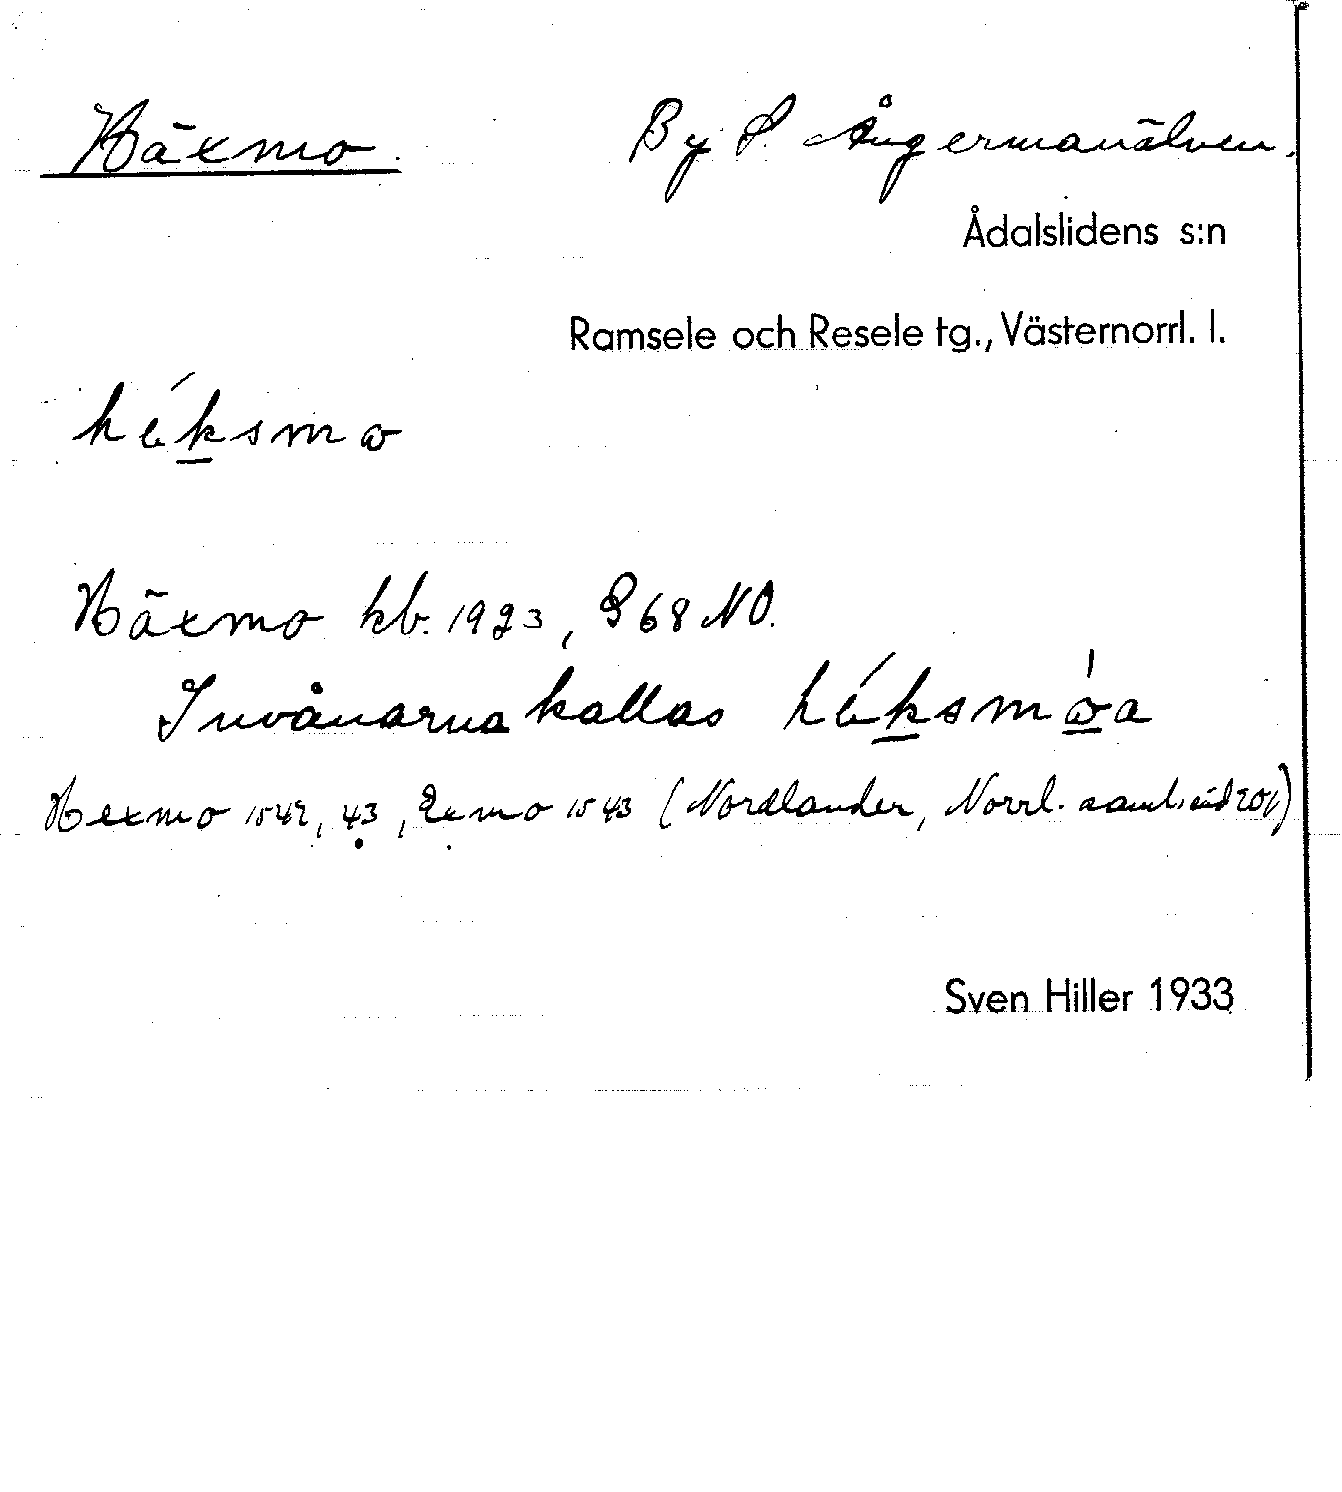 Häxmo. By S. Ångermanälven.
Ådalslidens s:n
Ramsele och Resele tg., Västernorrl. l.
hǽksmo
Häxmo kb. 1923, G 68 NO.
Invånarna kallas hǽksmo̍a
Hexmo 1542, 43, Exmo 1543 (Nordlander, Norrl. saml. sid 201)
Sven Hiller 1933